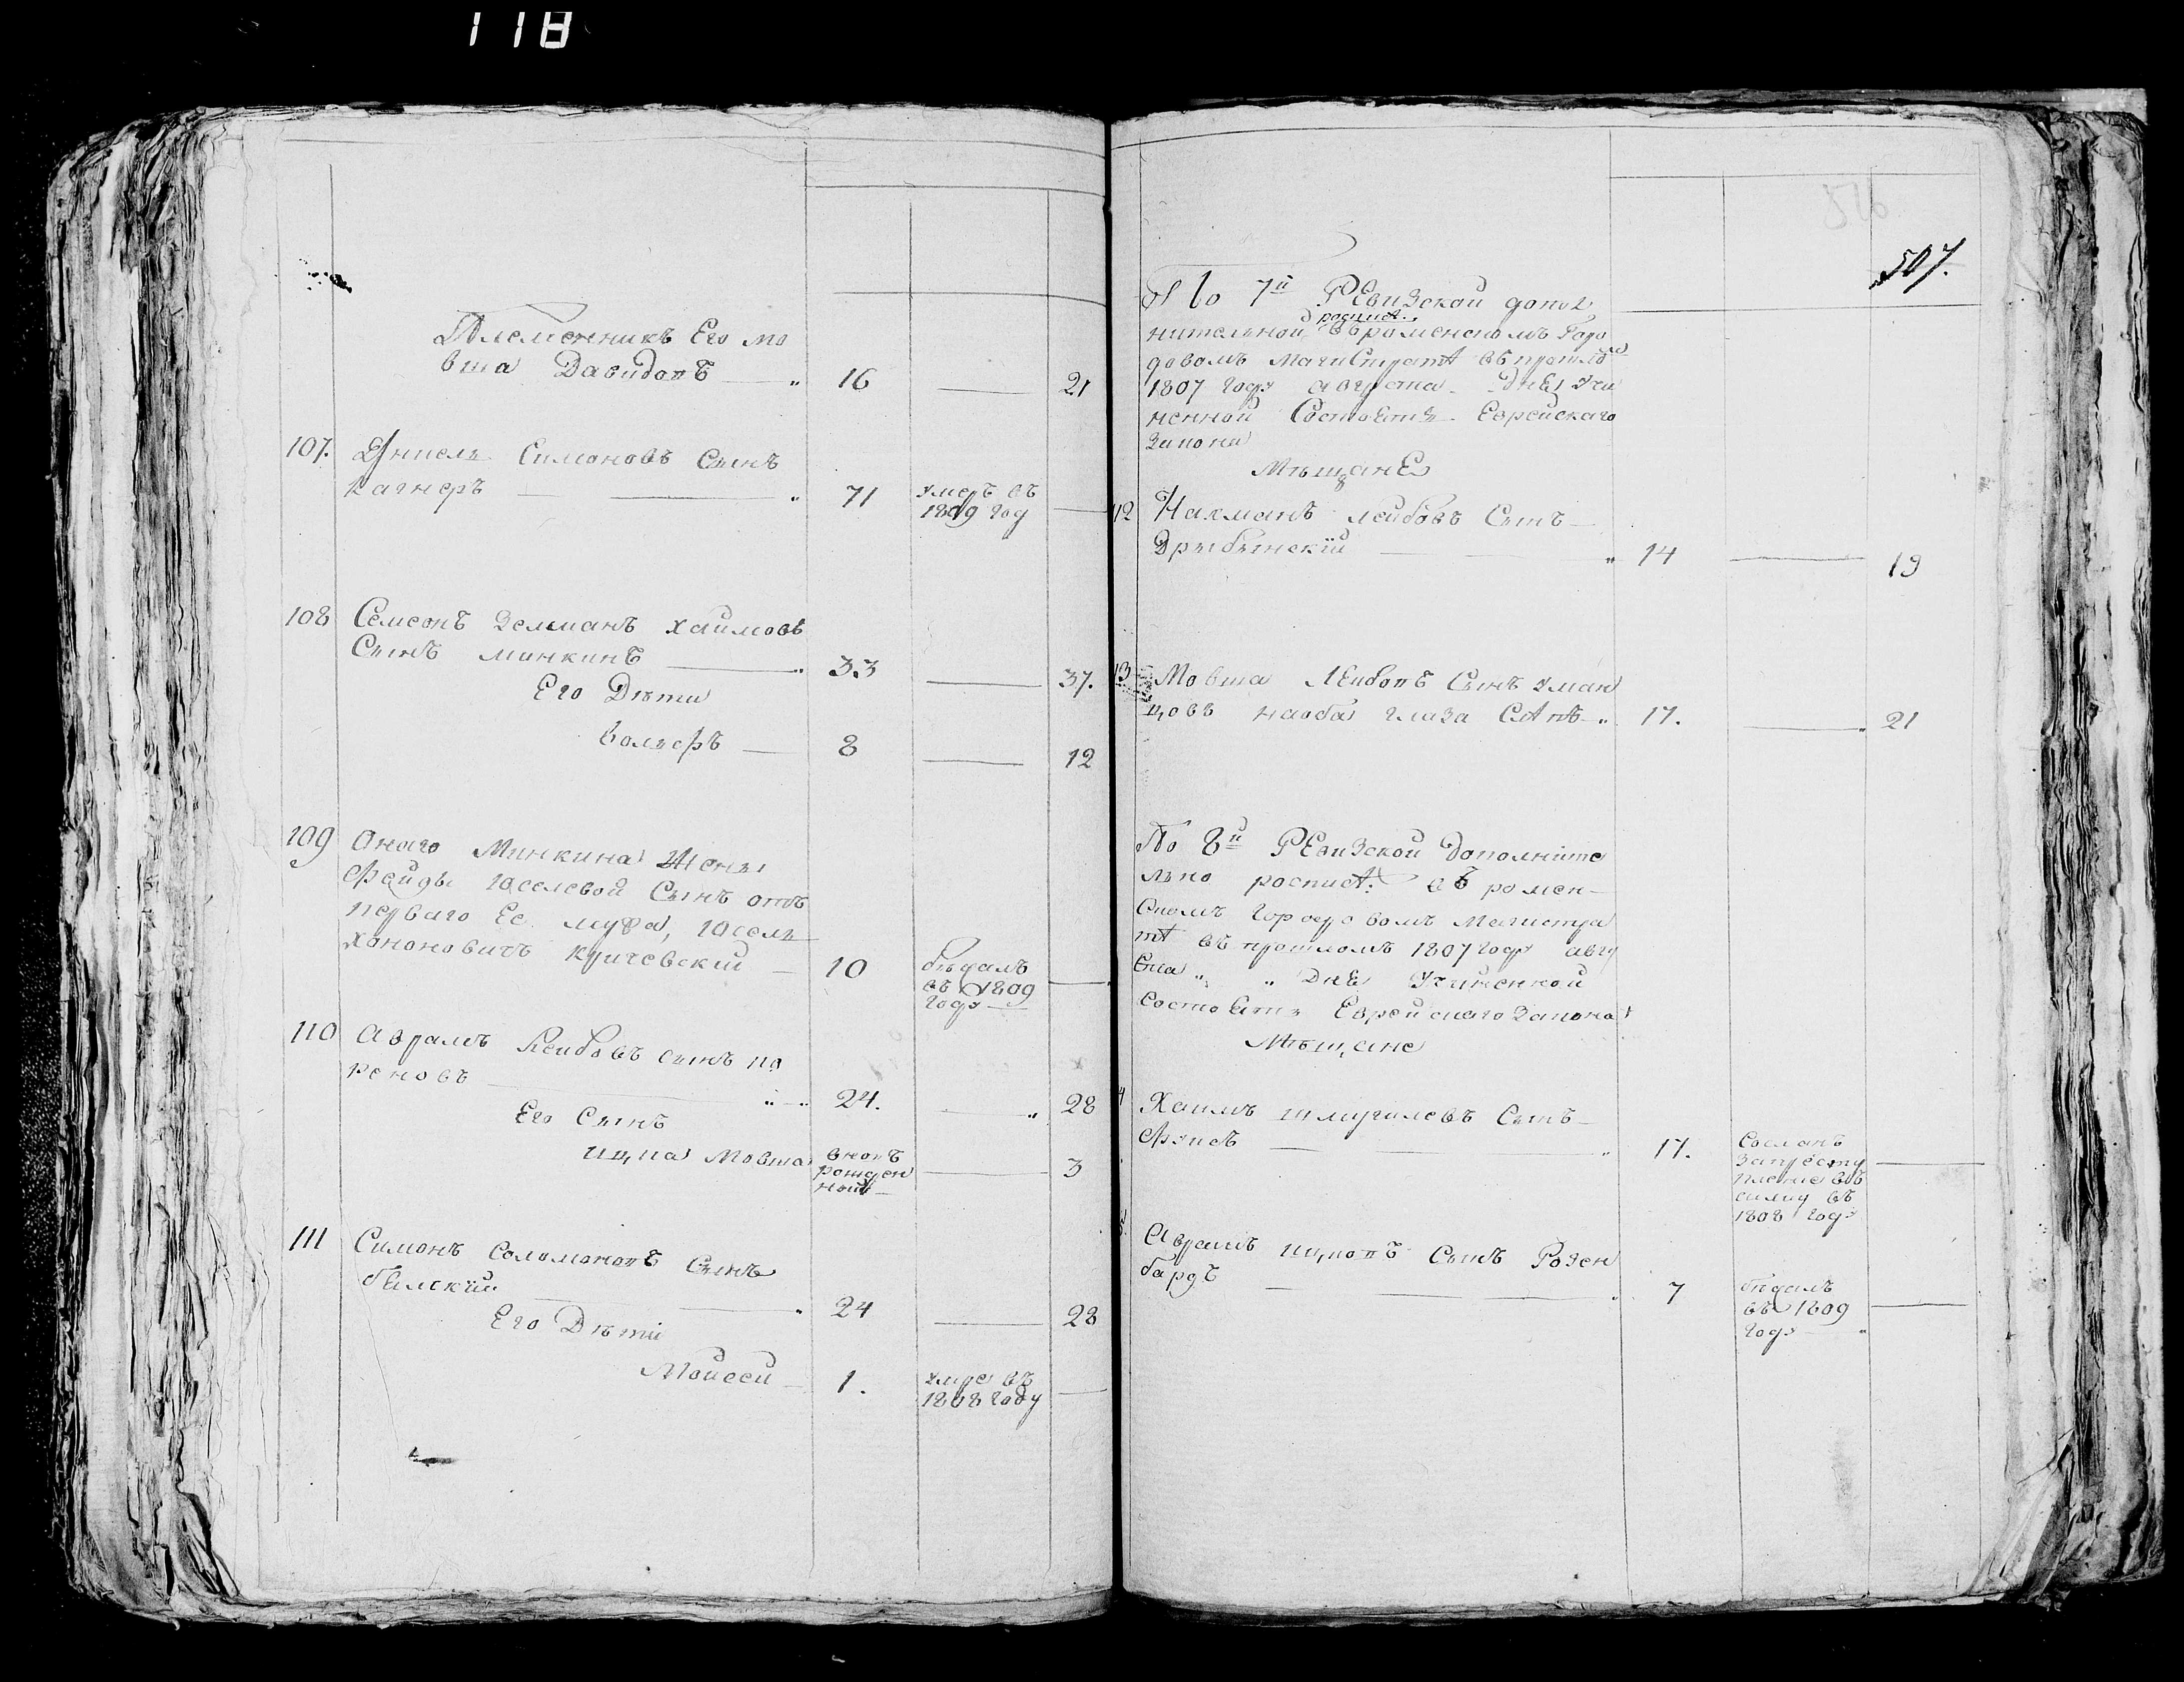 118
Племенникъ Его мо
вша Давидовъ — 16 — 21
107. Симоновъ Сынъ
Кагнеръ — 71 умеръ въ
1809 год —
108 Семенъ Зельманъ Хаимовъ
Сынъ Минкинъ — 33 — 37.
Его Дѣти
Вольфъ — 8 — 12
109 Онаго Минкина Жены
Фейды Юселевой Сынъ отъ
перваго Ее мужа, Юсель
Хононовичъ Кричевский — 10 бѣжалъ
въ 1809 —
году —
110 Аврамъ Лейбовъ сынъ по
реновъ — 24. — 28
Его Сынъ
Ицка Мовша вновь
рожден
ной — 3
111 Симонъ Соломоновъ Сынъ
бѣлскїй — 24 — 28
Его Дѣти
Мойсей — 1. умре въ
1808 году —
516
507.
По 7й Ревизской допол
росписѣ
нительной, въ роменскомъ Горо
довомъ Магистратѣ въ прошломъ
1807 году августа дня учи
ненной Состоятъ Еврейскаго
Закона
Мѣщане
12 Нахманъ Лейбовъ Сынъ —
Дрыбынскїй — 14 — 19
13 Мовша Лейбовъ Сынъ Уман
цовъ на оба глаза Слѣпъ 17. — 21
По 8й Ревизской Дополните
льно росписѣ въ ромен-
скомъ Городовомъ Магистра
тѣ въ прошломъ 1807 году авгу
ста " " Дня Учиненной
состоятъ Еврейскаго Закона
Мѣщане
4 Хаимъ Шмуилевъ Сынъ —
Фуксъ — 17. Сосланъ
за престу —
пление въ
1808 году
5 Аврамъ Ицковъ Сынъ Розен
бардъ — 7 бѣжалъ
въ 1809 —
году